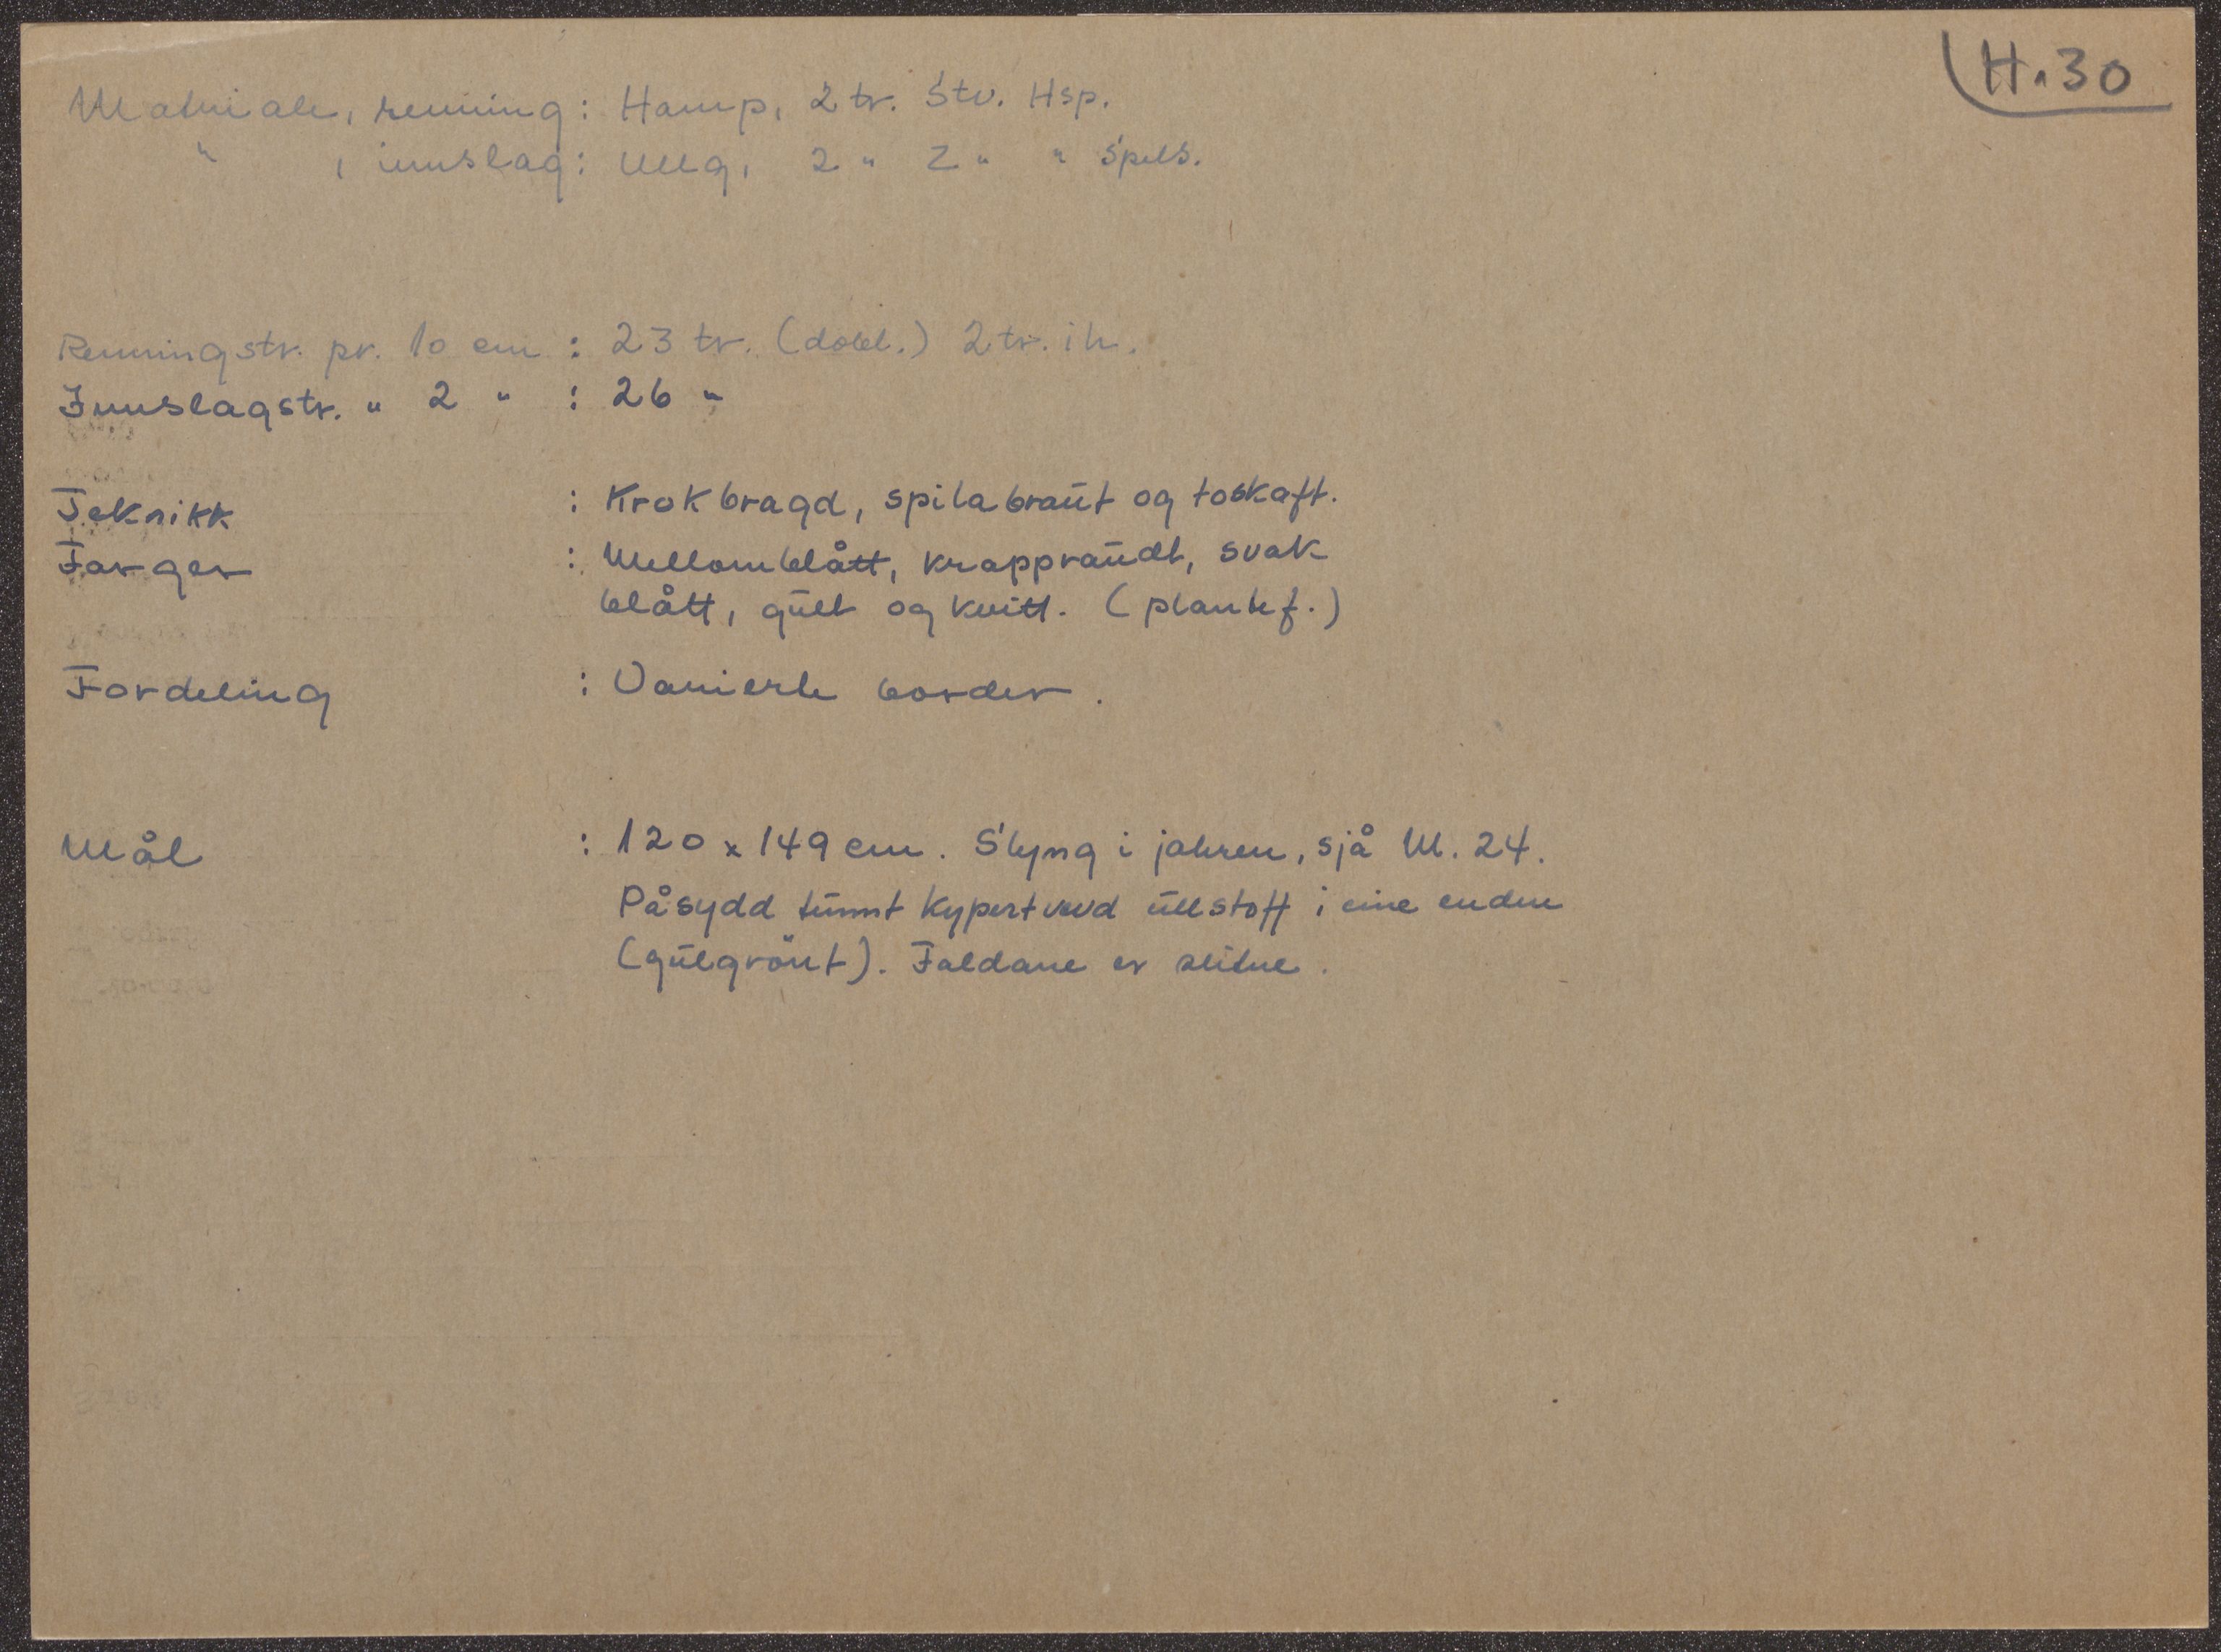 H.30
Materiale, renning: Hamp, 2 tr. Stv. Hsp.
" , innslag: Ullg, 2 " Z " " Spels.
Renningstr. pr. 10 cm : 23 tr. (dobl.) 2 tr. i h.
Innslagstr. " 2 " : 26 "
Teknikk : Krokbragd, spilabraut og toskaft.
Farger : Mellomblått, krappraudt, svak
blått, gult og kvitt. (plantef.)
Fordeling : Varierte border.
Mål : 120 x 149 cm. Slyng i jahren, sjå M. 24.
Påsydd tunnt kypertvevd ullstoff i eine enden
(gulgrönt). Faldane er slitne.